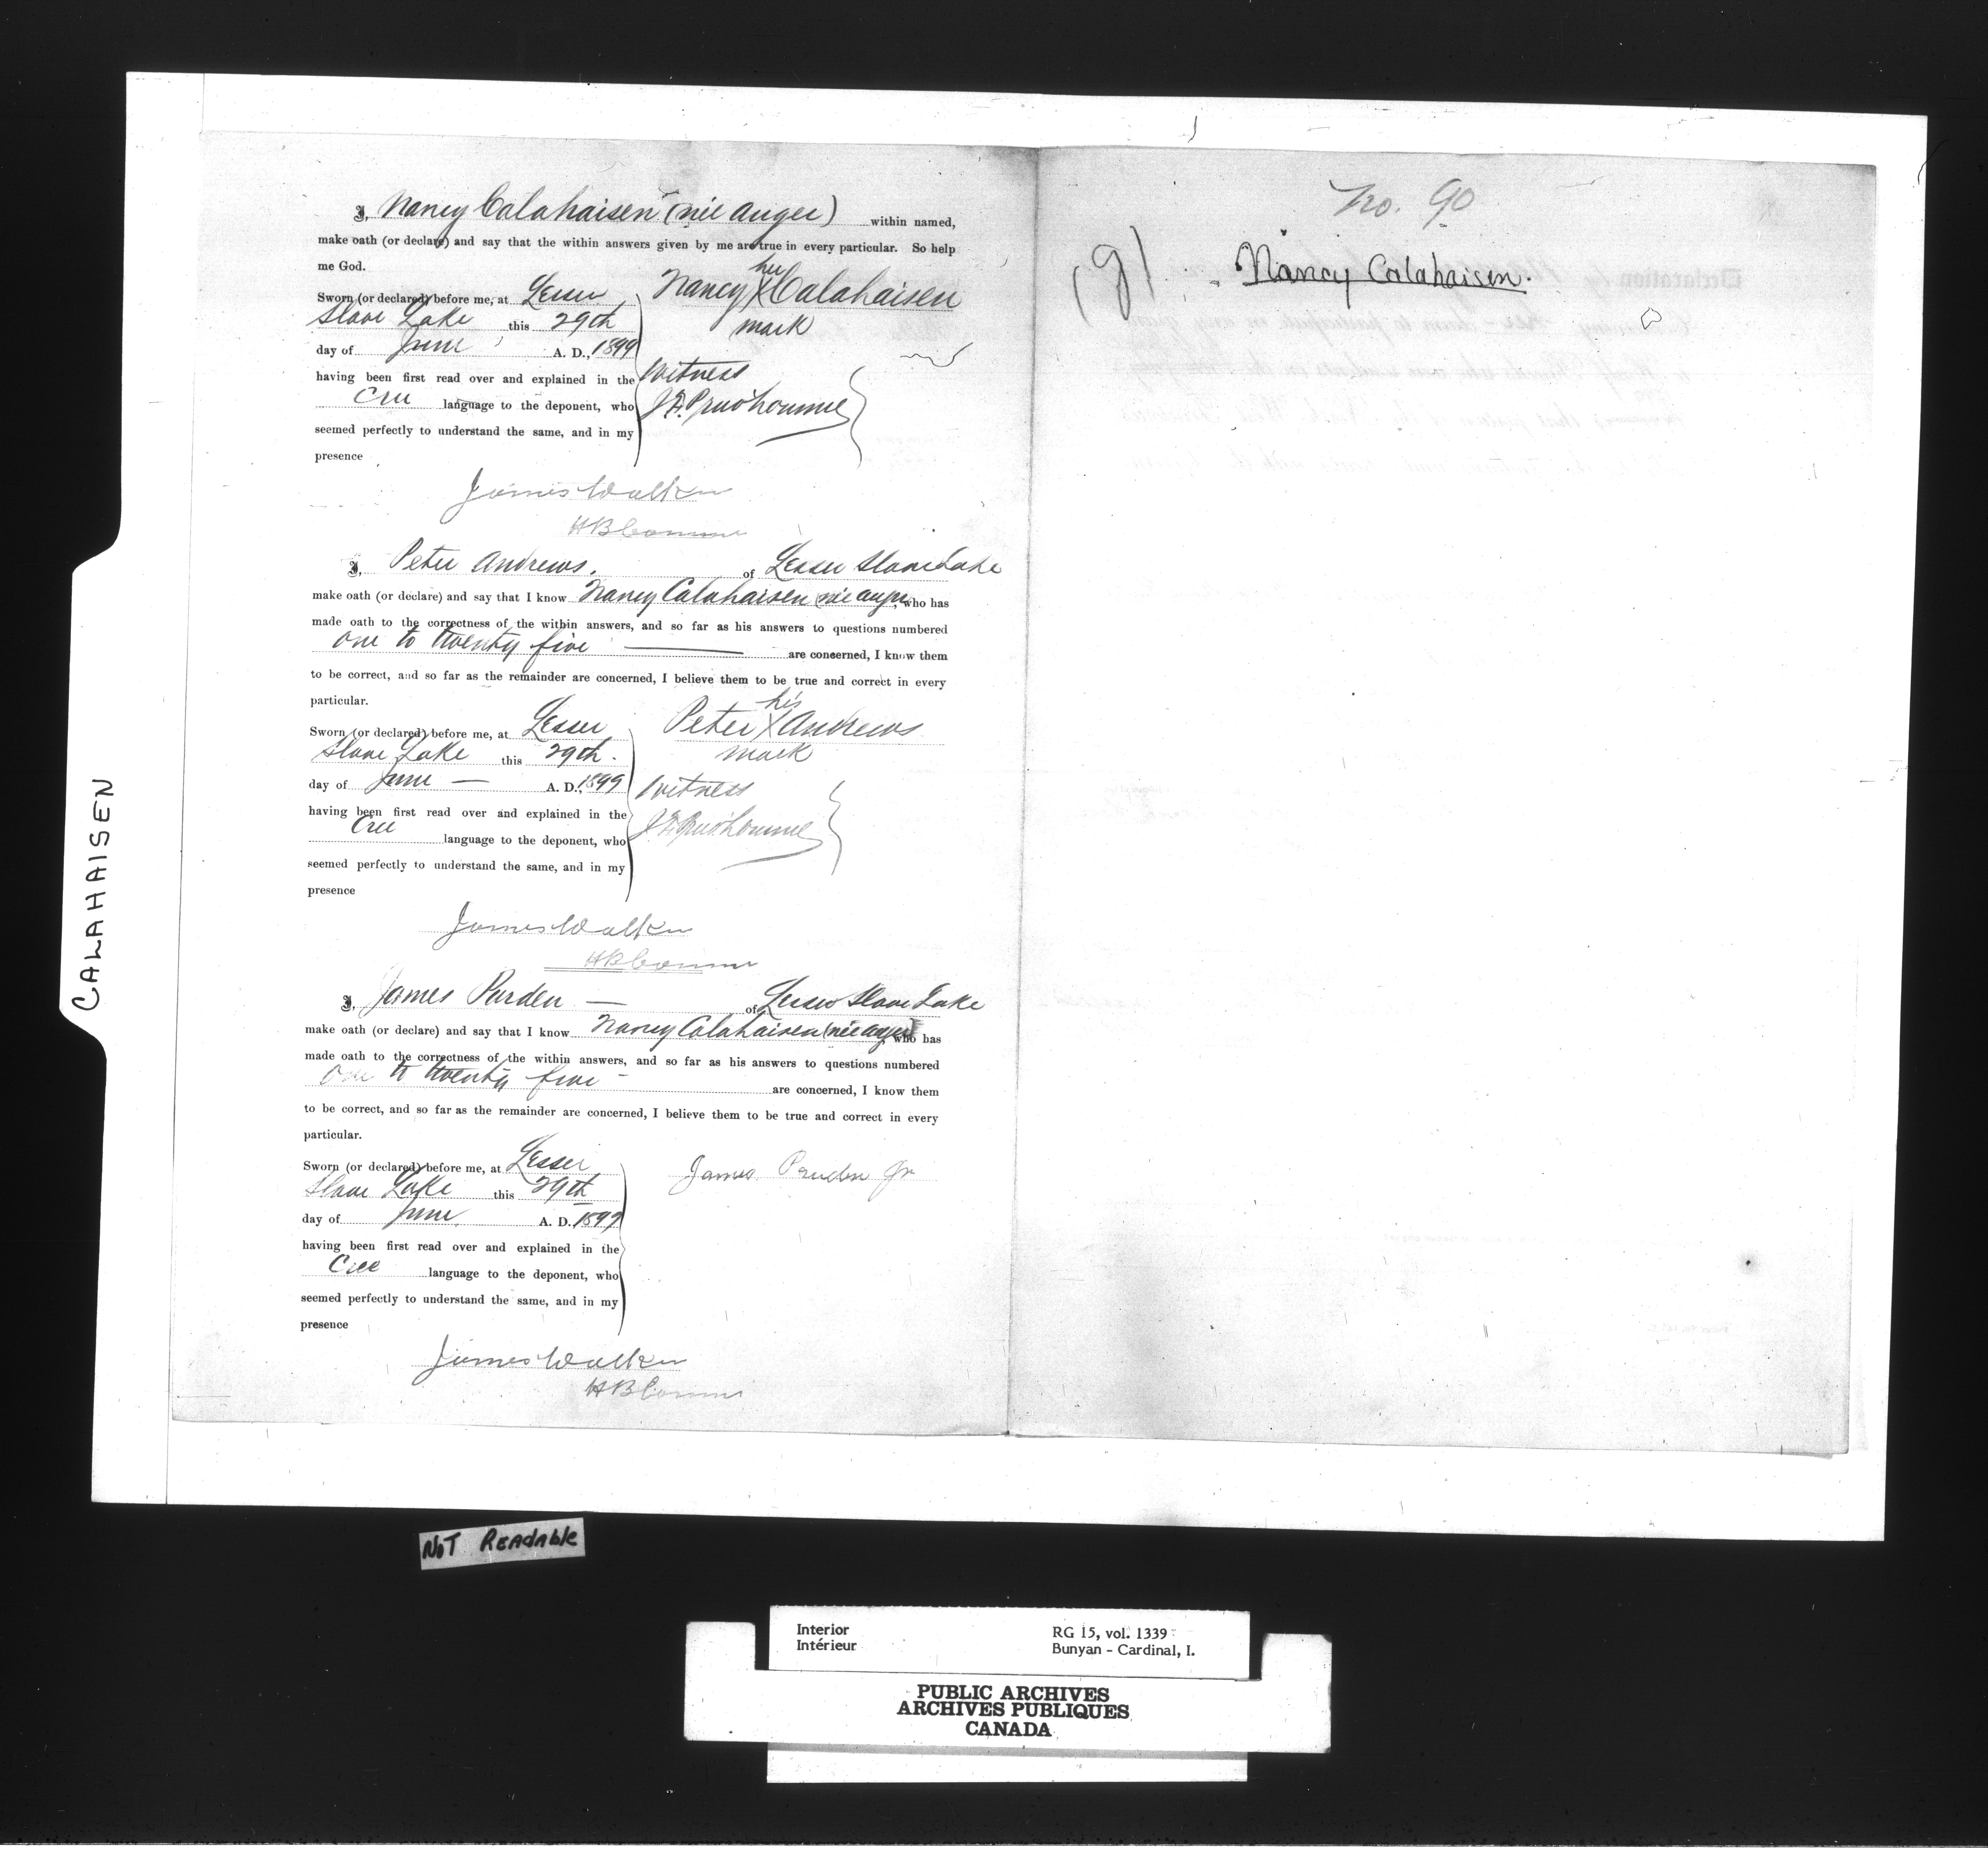 I, Nancy Calahaisen (née Auger) within named,
make oath (or declare) and say that the within answers given by me are true in every particular. So help
me God.
Sworn (or declared) before me, at Lesser
Slave Lake this 29th
day of June A. D., 1899
having been first read over and explained in the
Cree language to the deponent, who
seemed perfectly to understand the same, and in my
presence
her
Nancy X Calahaisen
mark
Witness
J. Prudhomme
James Walker
H B Comm
I, Peter Andrews. of Lesser Slave Lake
make oath (or declare) and say that I know Nancy Calahaisen (née Auger), who has
made oath to the correctness of the within answers, and so far as his answers to questions numbered
one to twenty five are concerned, I know them
to be correct, and so far as the remainder are concerned, I believe them to be true and correct in every
particular.
Sworn (or declared) before me, at Lesser
Slave Lake this 29th.
day of June — A. D., 1899
having been first read over and explained in the
Cree language to the deponent, who
seemed perfectly to understand the same, and in my
presence
his
Peter X Andrews
mark
Witness
J. Prudhomme
James Walker
H B Comm
I, James Purden — of Lesser Slave Lake
make oath (or declare) and say that I know Nancy Calahaisen (née Auger) who has
made oath to the correctness of the within answers, and so far as his answers to questions numbered
One to twenty five are concerned, I know them
to be correct, and so far as the remainder are concerned, I believe them to be true and correct in every
particular.
Sworn (or declared) before me, at Lesser
Slave Lake this 29th
day of June A. D. 1899
having been first read over and explained in the
Cree language to the deponent, who
seemed perfectly to understand the same, and in my
presence
James Pruden Jr
James Walker
H B Comm
No. 90
(g)
Nancy Calahaisen.
CALAHAISEN
NOT READABLE
Interior
Intérieur
RG 15, vol. 1339
Bunyan - Cardinal, I.
PUBLIC ARCHIVES
ARCHIVES PUBLIQUES
CANADA